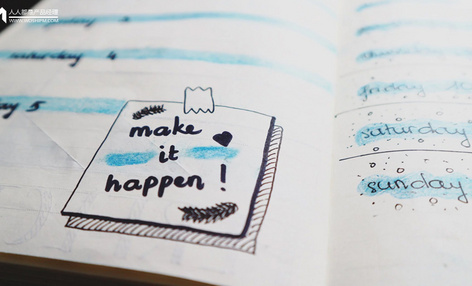 人人都是产品经理
WWW.WOSHIPM.COM
saturday 4
day 5
make
it
happen !
friday
saturday
sunday